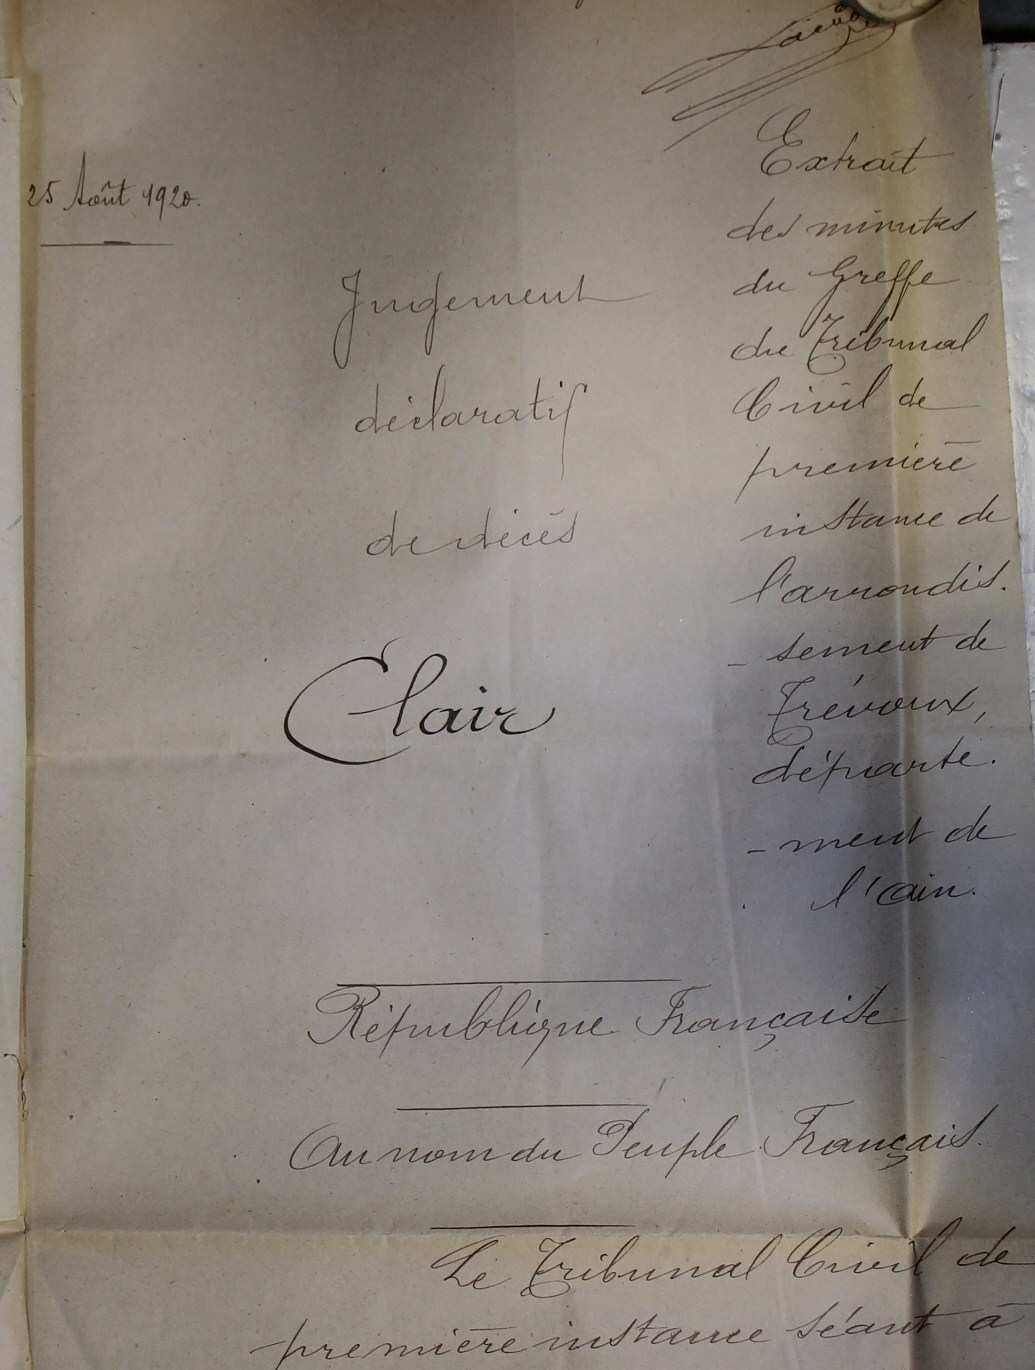 25 Août 1920.
Jugement
déclaratif
de décès
Clair
Extrait
des minutes
du Greffe
du Tribunal
Civil de
première
instance de
l'arrondis.
- sement de
Trévoux,
départe.
- ment de
l'ain.
République Française
Au nom du Peuple Français
Le Tribunal Civil de
première instance séant à